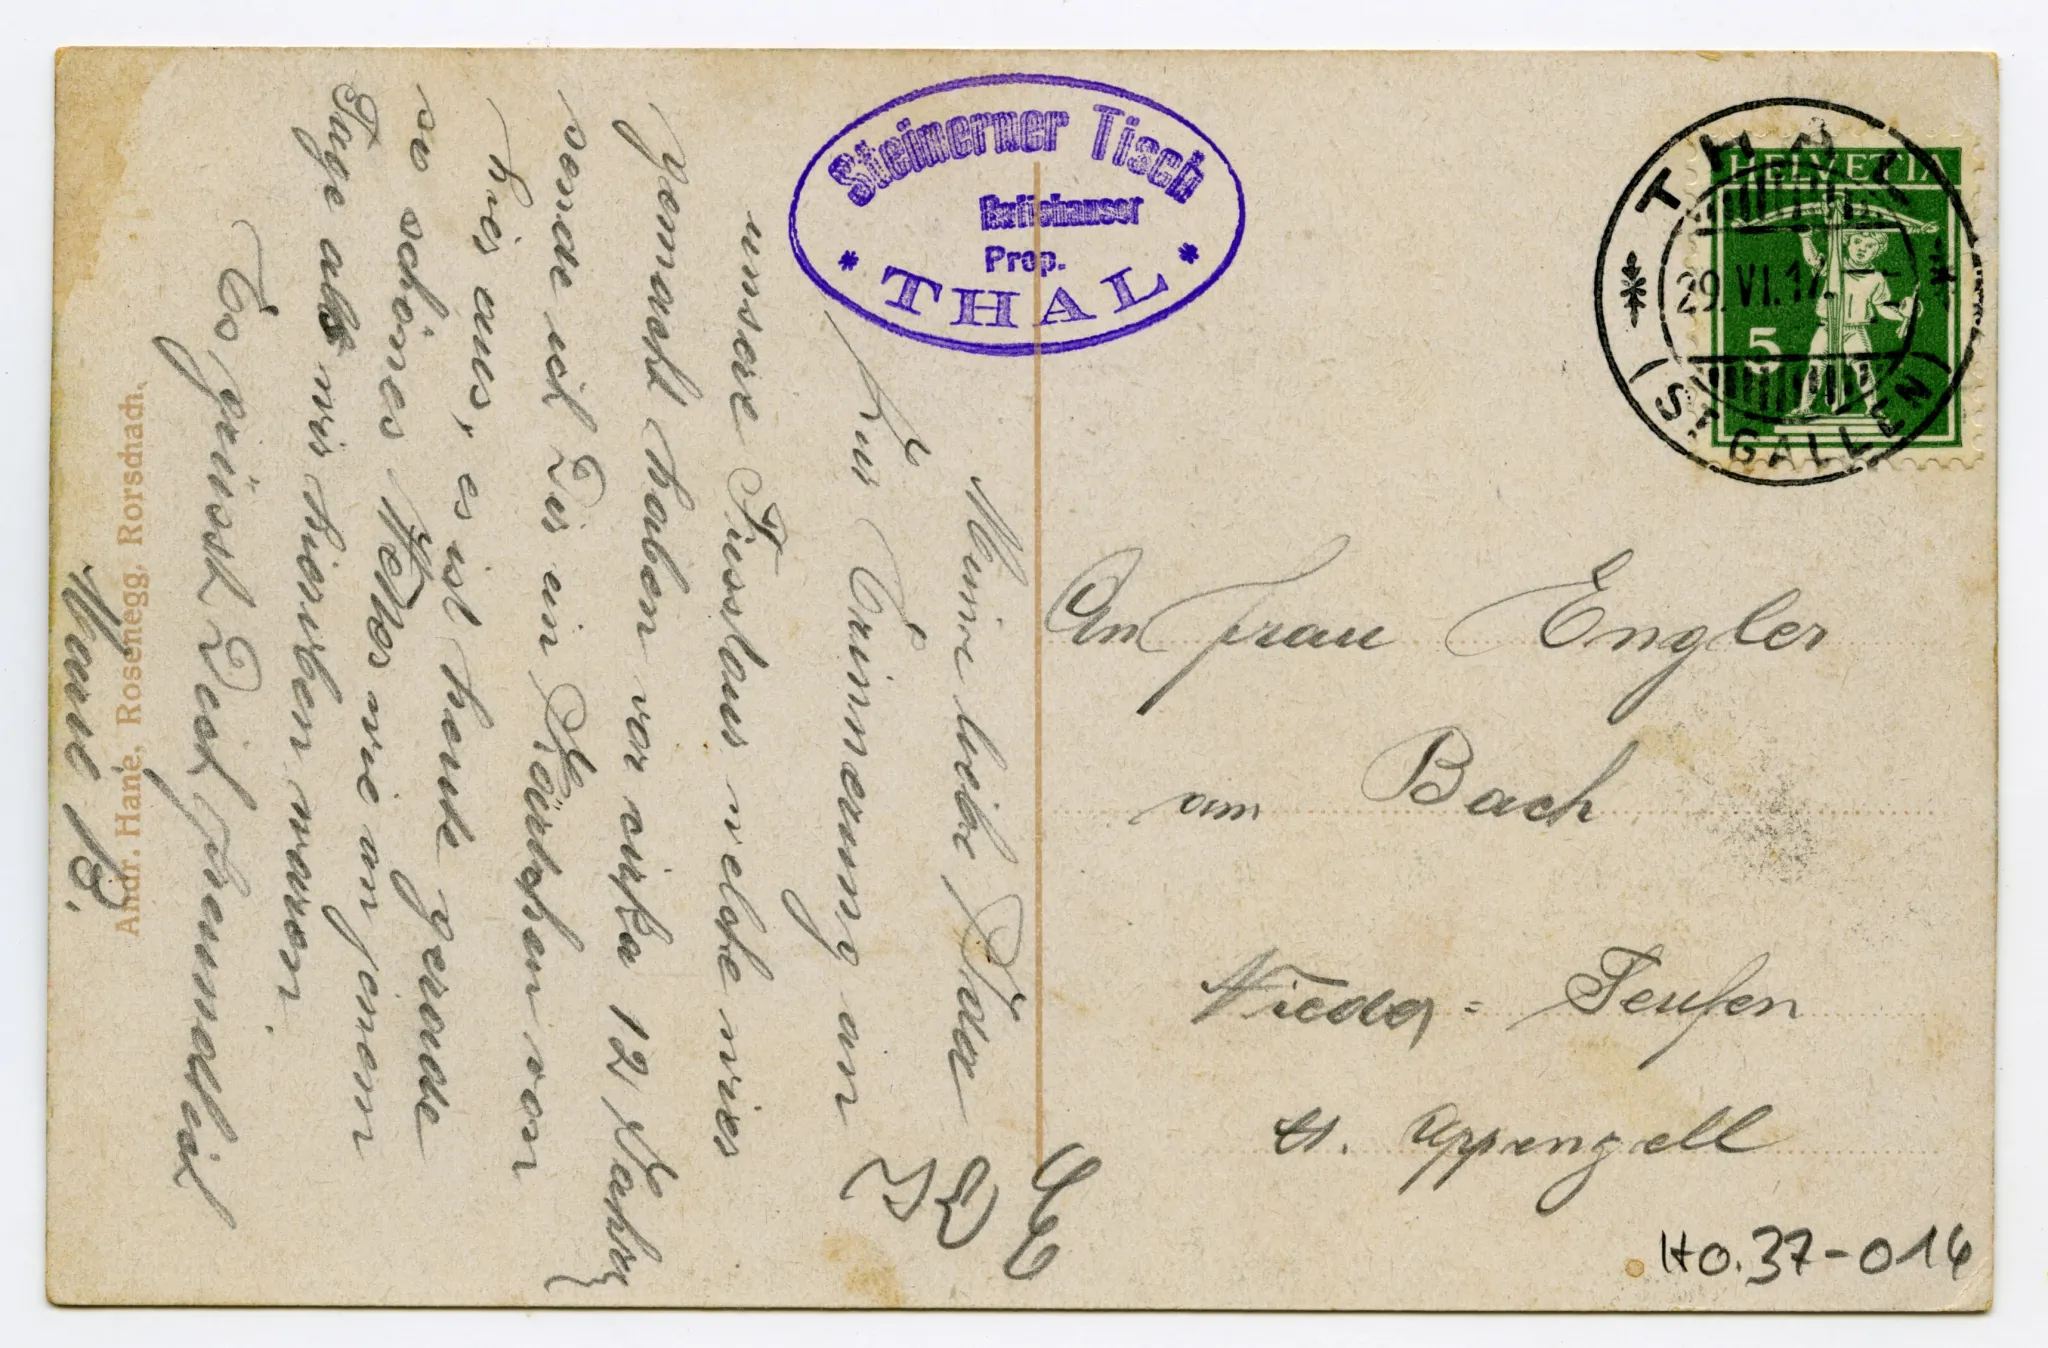 Meine liebe Ida
Zur Erinnerung an
unsere Fusstour welche wir
gemacht haben vor cirka 12 Jahren
sende ich Dir ein Kärtchen von
hier aus, es ist heute gerade
so schönes Wetter wie an jenem
Tage als wir hierben waren.
Es grüsst Dich freundlich
Marie B.
Andr. Hane, Rosenegg, Rorschach.
Steinerner Tisch
Prop.
* THAL *
THAL
29.VI.17.
(ST. GALLEN)
HELVETIA
5
An Frau Engler
am Bach
Nieder = Teufen
Kt. Appenzell
HO.37-016